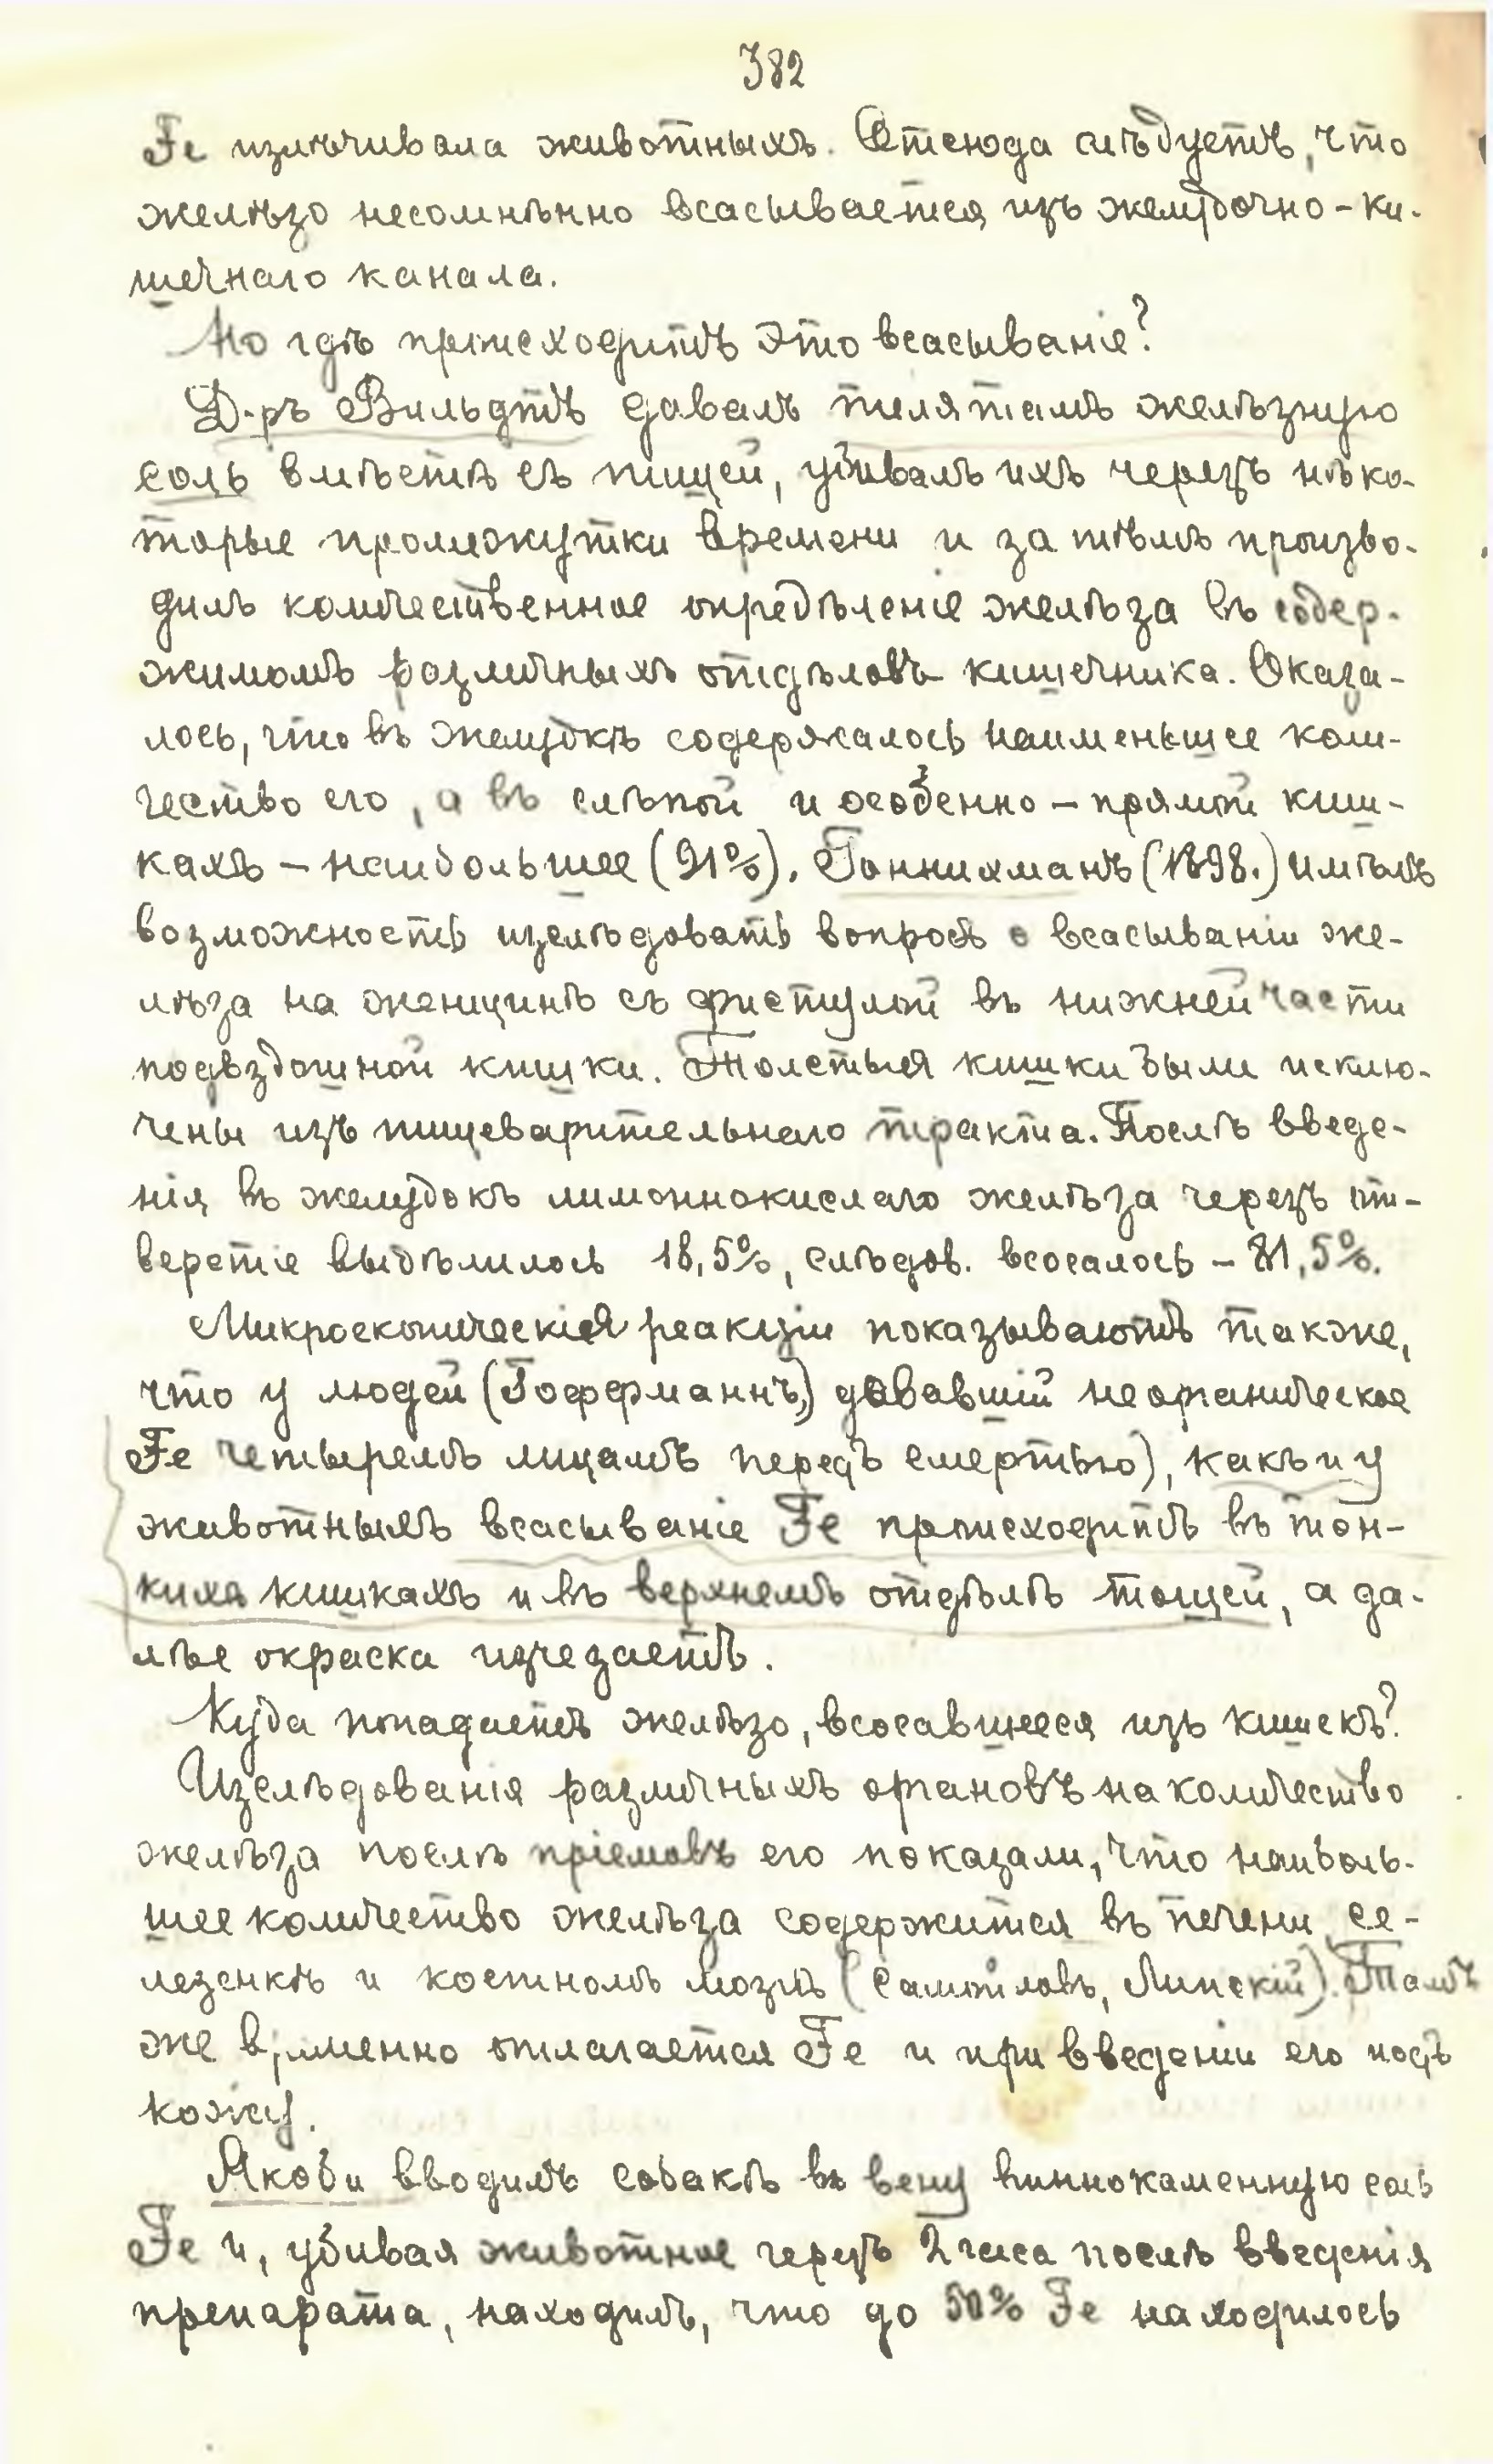 382
Fe излѣчивала животныхъ. Отсюда слѣдуетъ, что
желѣзо несомнѣнно всасывается изъ желудочно-ки-
шечнаго канала.
Но гдѣ происходитъ это всасываніе?
Д-ръ Вильдтъ давалъ телятамъ желѣзную
соль вмѣстѣ съ пищей, убивалъ ихъ черезъ нѣко-
торые промежутки времени и за тѣмъ произво-
дилъ количественное опредѣленіе желѣза въ содер-
жимомъ различныхъ отдѣловъ кишечника. Оказа-
лось, что въ желудкѣ содержалось наименьшее коли-
чество его, а въ слѣпой и особенно – прямой киш-
кахъ – наибольшее (91%). Гоннихманъ (1898.) имѣлъ
возможность изслѣдовать вопросъ о всасываніи же-
лѣза на женщинѣ съ фистулой въ нижней части
подвздошной кишки. Толстыя кишки были исклю-
чены изъ пищеварительнаго тракта. Послѣ введе-
нія въ желудокъ лимоннокислаго желѣза черезъ от-
верстіе выдѣлилось 18,5%, слѣдов. всосалось – 81,5%.
Микроскопическія реакціи показываютъ также,
что у людей (Гофманнъ,) дававшій неорганическое
Fe четыремъ лицамъ передъ смертью), какъ и у
животныхъ всасываніе Fe происходитъ въ тон-
кихъ кишкахъ и въ верхнемъ отдѣлѣ тощей, а да-
лѣе окраска изчезаетъ.
Куда попадаетъ желѣзо, всосавшееся изъ кишекъ?
Изслѣдованія различныхъ органовъ на количество
желѣза послѣ пріемовъ его показали, что наиболь-
шее количество желѣза содержится въ печени, се-
лезенкѣ и костномъ мозгѣ (Самойловъ, Липскій). Тамъ
же временно отлагается Fe и при введеніи его подъ
кожу.
Якоби вводилъ собакѣ въ вену виннокаменную соль
Fe и, убивая животное черезъ 2 часа послѣ введенія
препарата, находилъ, что до 50% Fe находилось